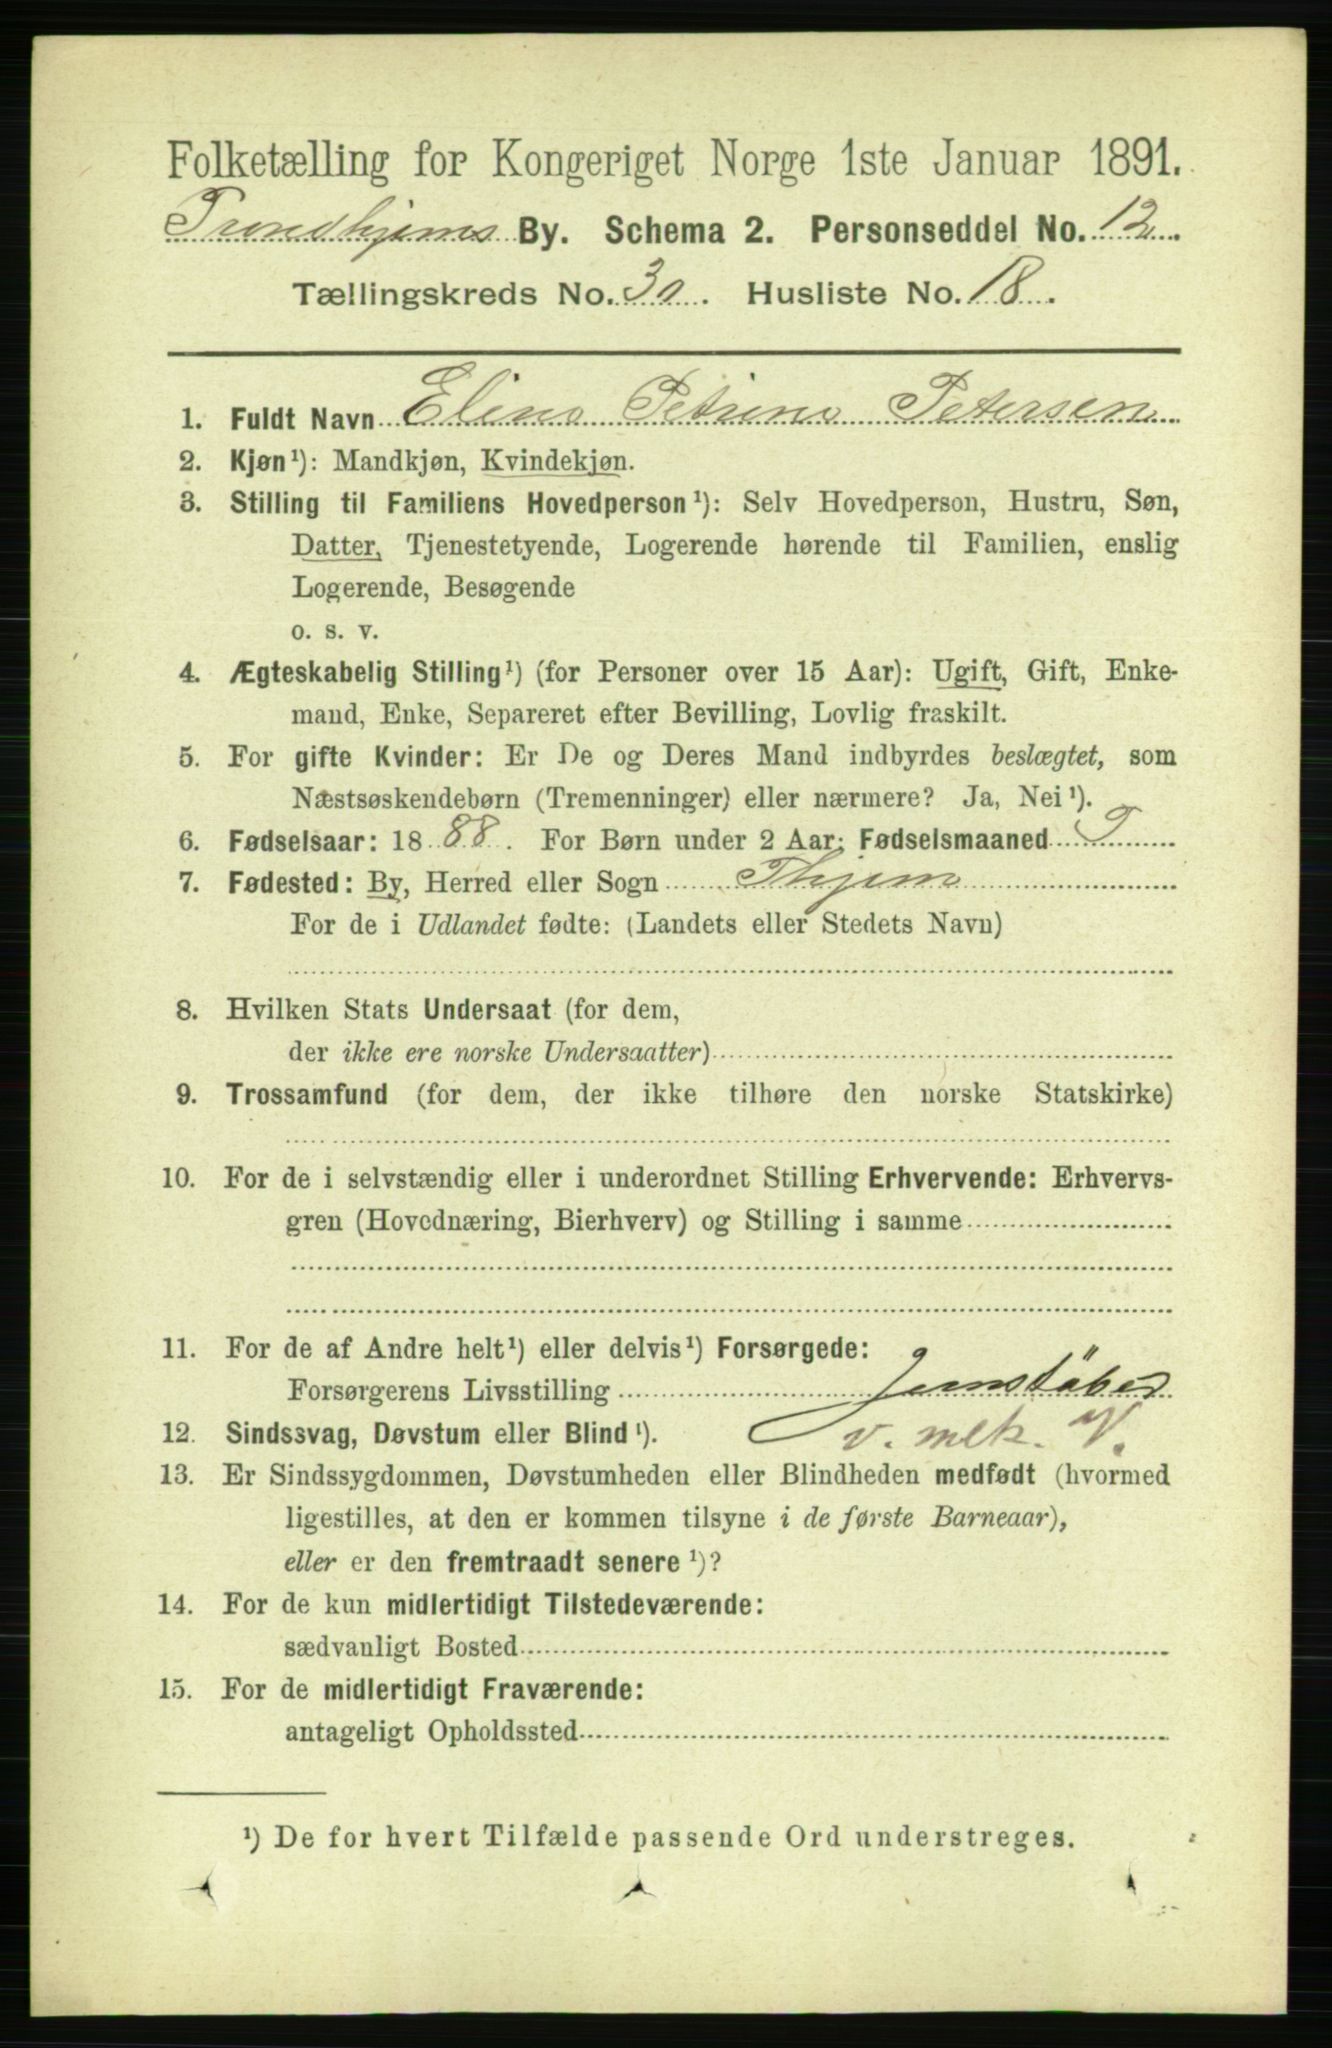 Folketælling for Kongeriget Norge 1ste Januar 1891.
Trondhjems By. Schema 2. Personseddel No. 12
Tællingskreds No. 30. Husliste No. 18.
1. Fuldt Navn Elina Petrine Petersen
2. Kjøn¹): Mandkjøn, Kvindekjøn.
3. Stilling til Familiens Hovedperson¹): Selv Hovedperson, Hustru, Søn,
Datter, Tjenestetyende, Logerende hørende til Familien, enslig
Logerende, Besøgende
o. s. v.
4. Ægteskabelig Stilling¹) (for Personer over 15 Aar): Ugift, Gift, Enke-
mand, Enke, Separeret efter Bevilling, Lovlig fraskilt.
5. For gifte Kvinder: Er De og Deres Mand indbyrdes beslægtet, som
Næstsøskendebørn (Tremenninger) eller nærmere? Ja, Nei¹).
6. Fødselsaar: 1888. For Børn under 2 Aar: Fødselsmaaned T
7. Fødested: By, Herred eller Sogn Thjem
For de i Udlandet fødte: (Landets eller Stedets Navn)
8. Hvilken Stats Undersaat (for dem,
der ikke ere norske Undersaatter)
9. Trossamfund (for dem, der ikke tilhøre den norske Statskirke)
10. For de i selvstændig eller i underordnet Stilling Erhvervende: Erhvervs-
gren (Hovednæring, Bierhverv) og Stilling i samme
11. For de af Andre helt¹) eller delvis¹) Forsørgede:
Forsørgerens Livsstilling Jernstöber
12. Sindssvag, Døvstum eller Blind¹). v. mek. V.
13. Er Sindssygdommen, Døvstumheden eller Blindheden medfødt (hvormed
ligestilles, at den er kommen tilsyne i de første Barneaar),
eller er den fremtraadt senere¹)?
14. For de kun midlertidigt Tilstedeværende:
sædvanligt Bosted
15. For de midlertidigt Fraværende:
antageligt Opholdssted
¹) De for hvert Tilfælde passende Ord understreges.